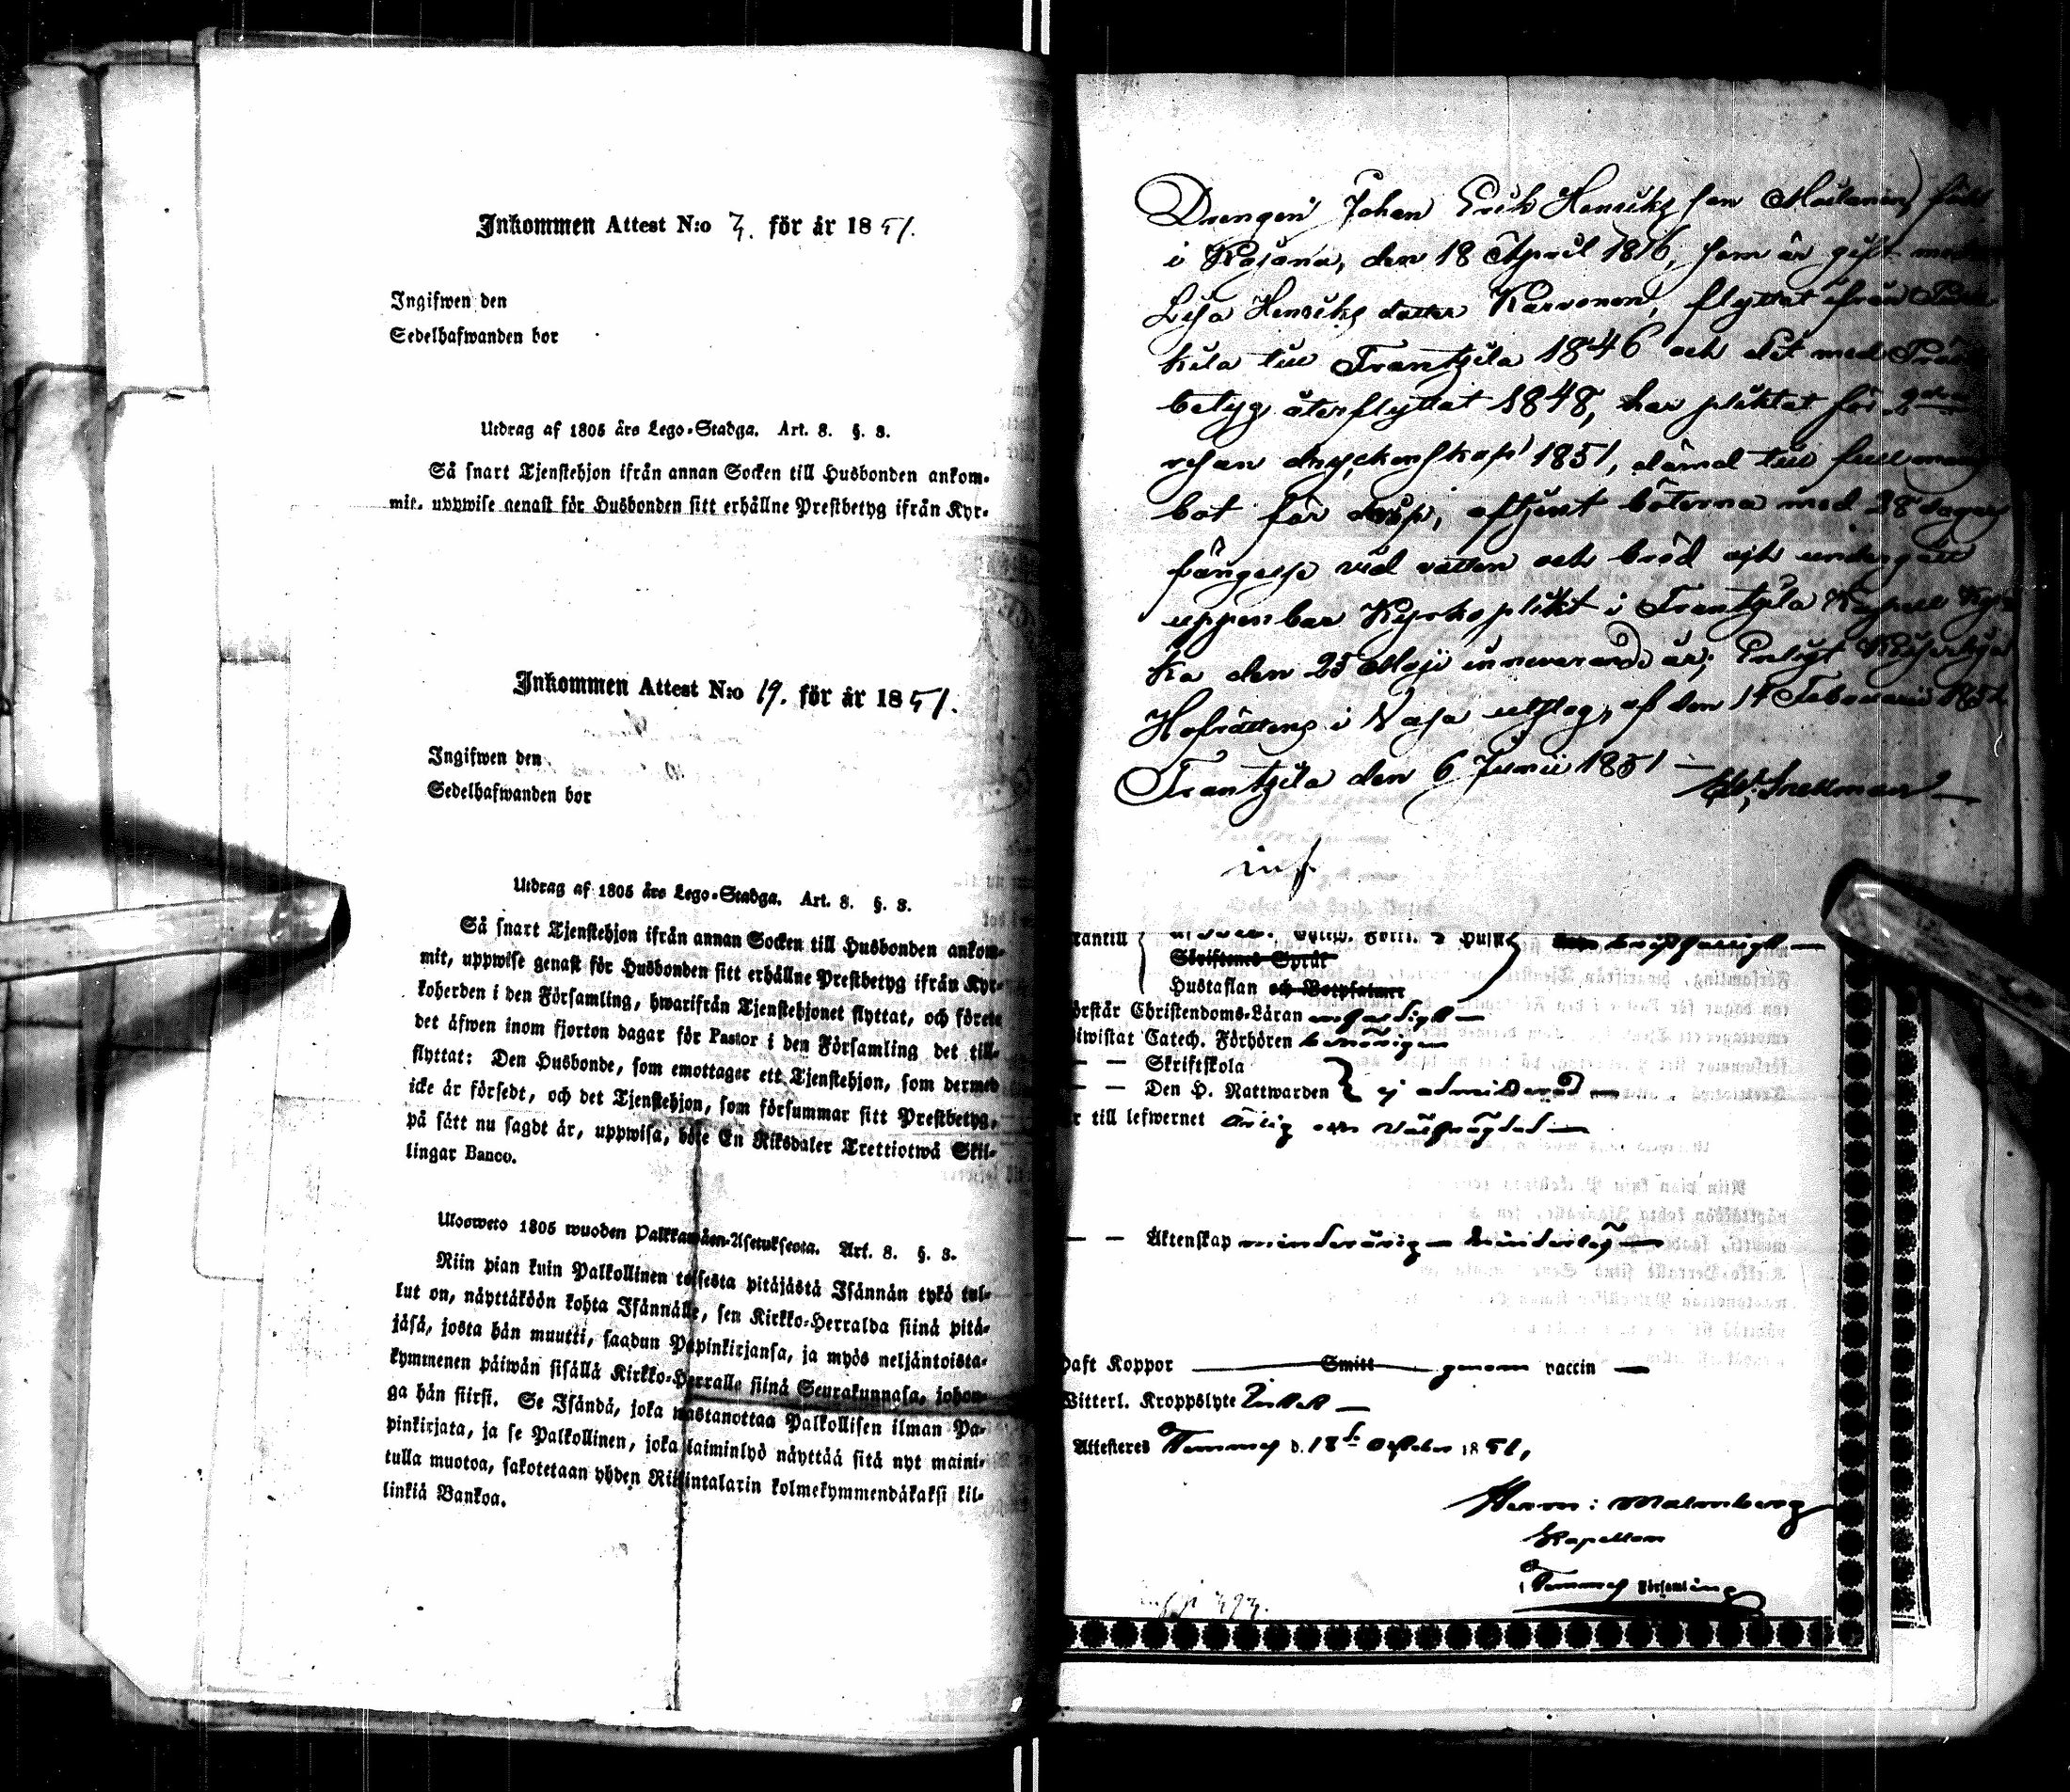 Inkommen Attest N:o 3. för år 1851.
Ingifwen den
Sedelhafwanden bor
Utdrag af 1805 års Lego-Stadga. Art. 8. §. 8.
Så snart Tjenstehjon ifrån annan Socken till Husbonden ankom-
mit, uppwise genast för Husbonden sitt erhållne Prestbetyg ifrån Kyr-
Inkommen Attest N:o 19. för år 1851.
Ingifwen den
Sedelhafwanden bor
Utdrag af 1805 års Lego-Stadga. Art. 8. §. 8.
Så snart Tjenstehjon ifrån annan Socken till Husbonden ankom-
mit, uppwise genast för Husbonden sitt erhållne Prestbetyg ifrån Kyr-
koherden i den Församling, hwarifrån Tjenstehjonet flyttat, och förete
det äfwen inom fjorton dagar för Pastor i den Församling det till-
flyttat: Den Husbonde, som emottager ett Tjenstehjon, som dermed
icke är försedt, och det Tjenstehjon, som försummar sitt Prestbetyg,
på sätt nu sagdt är, uppwisa, böte En Riksdaler Trettiotwå Skil-
lingar Banco.
Ulosweto 1805 wuoden Palkkawäen-Asetuksesta. Art. 8. §. 8.
Niin pian kuin Palkollinen toisesta pitäjästä Isännän tykö tul-
lut on, näyttäköön kohta Isännälle, sen Kirkko-Herralda siinä pitä-
jäsä, josta hän muutti, saadun Papinkirjansa, ja myös neljäntoista-
kymmenen päiwän sisällä Kirkko-Herralle siinä Seurakunnasa, johon-
ga hän siirsi. Se Isändä, joka wastanottaa Palkollisen ilman Pa-
pinkirjata, ja se Palkollinen, joka laiminlyö näyttää sitä nyt maini-
tulla muotoa, sakotetaan yhden Riikintalarin kolmekymmendäkaksi kil-
linkiä Bankoa.
Drengen Johan Erik Henriks son född
i Pajana, den 18 April 1816, som är gift med
Lisa Henriks dotter Karvonen, flyttat ifrån
kila till Frantzila 1846 och dit med
betyg återflyttat 1848, har pliktat för
resan dryckenskap 1851, dömd till full
bot för dråp, aftjent böterna med 28 dagars
fängelse vid vatten och bröd och undergått
uppenbar Kyrkoplikt i Frantzila Kapell Kyr
ka den 25 Maji innevarande år; Enligt Kejserliga
Hofrättens i Vasa utslag, af den 14 Februarii 1851.
Frantzila den 6 Junii 1851 —
Snellman
inf.
Skriftens Språk
Hustaflan och Botpsalmer
örstår Christendoms-Läran
iwistat Catech. Förhören
— — Skriftskola
— — Den H. Nattwarden } ej admitterad —
r till lefwernet ärlig och välfrägdad —
— — Äktenskap minderårig — hinderlös —
haft Koppor — Smitt — genom vaccin —
Witterl. Kroppslyte Intet —
Attesteres Temmes d. 18 October 1851,
Herm: Malmberg
Kapellan
i Temmes Församling